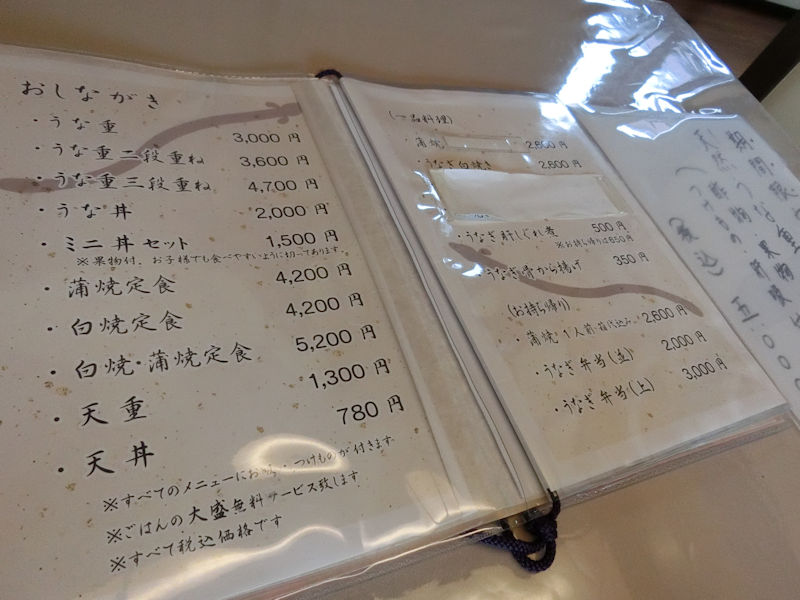 おしながき
・うな重 3,000円
・うな重二段重ね 3,600円
・うな重三段重ね 4,700円
・うな丼 2,000円
・ミニ丼セット 1,500円
※果物付。お子様でも食べやすいように切ってあります。
・蒲焼定食 4,200円
・白焼定食 4,200円
・白焼・蒲焼定食 5,200円
・天重 1,300円
・天丼 780円
※すべてのメニューにお吸・つけものが付きます
※ごはんの大盛無料サービス致します
※すべて税込価格です
(一品料理)
・蒲焼 2,600円
・うなぎ白焼き 2,600円
・うなぎ肝しぐれ煮 500円
※お持ち帰りは650円
・うなぎ骨から揚げ 350円
(お持ち帰り)
・蒲焼・1人前・箱代込み 2,600円
・うなぎ弁当(並) 2,000円
・うなぎ弁当(上) 3,000円
期・間・限
うな重 果物
天然
(税込) 五、〇〇〇